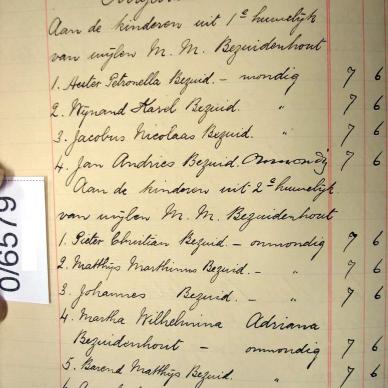 Aan de kinderen uit 1e huwelijk
van wijlen M. M. Bezuidenhout
1. Hester Petronella Bezuid. – mondig 7 6
2. Wynand Karel Bezuid. " 7 6
3. Jacobus Nicolaas Bezuid. " 7 6
4. Jan Andries Bezuid. Onmondig 7 6
Aan de kinderen uit 2e huwelijk
van wijlen M. M. Bezuidenhout
1. Pieter Christian Bezuid. – onmondig 7 6
2. Matthys Marthinus Bezuid. – " 7 6
3. Johannes Bezuid. – " 7 6
4. Martha Wilhelmina Adriana
Bezuidenhout – onmondig 7 6
5. Barend Matthys Bezuid. " 7 6
0/6579